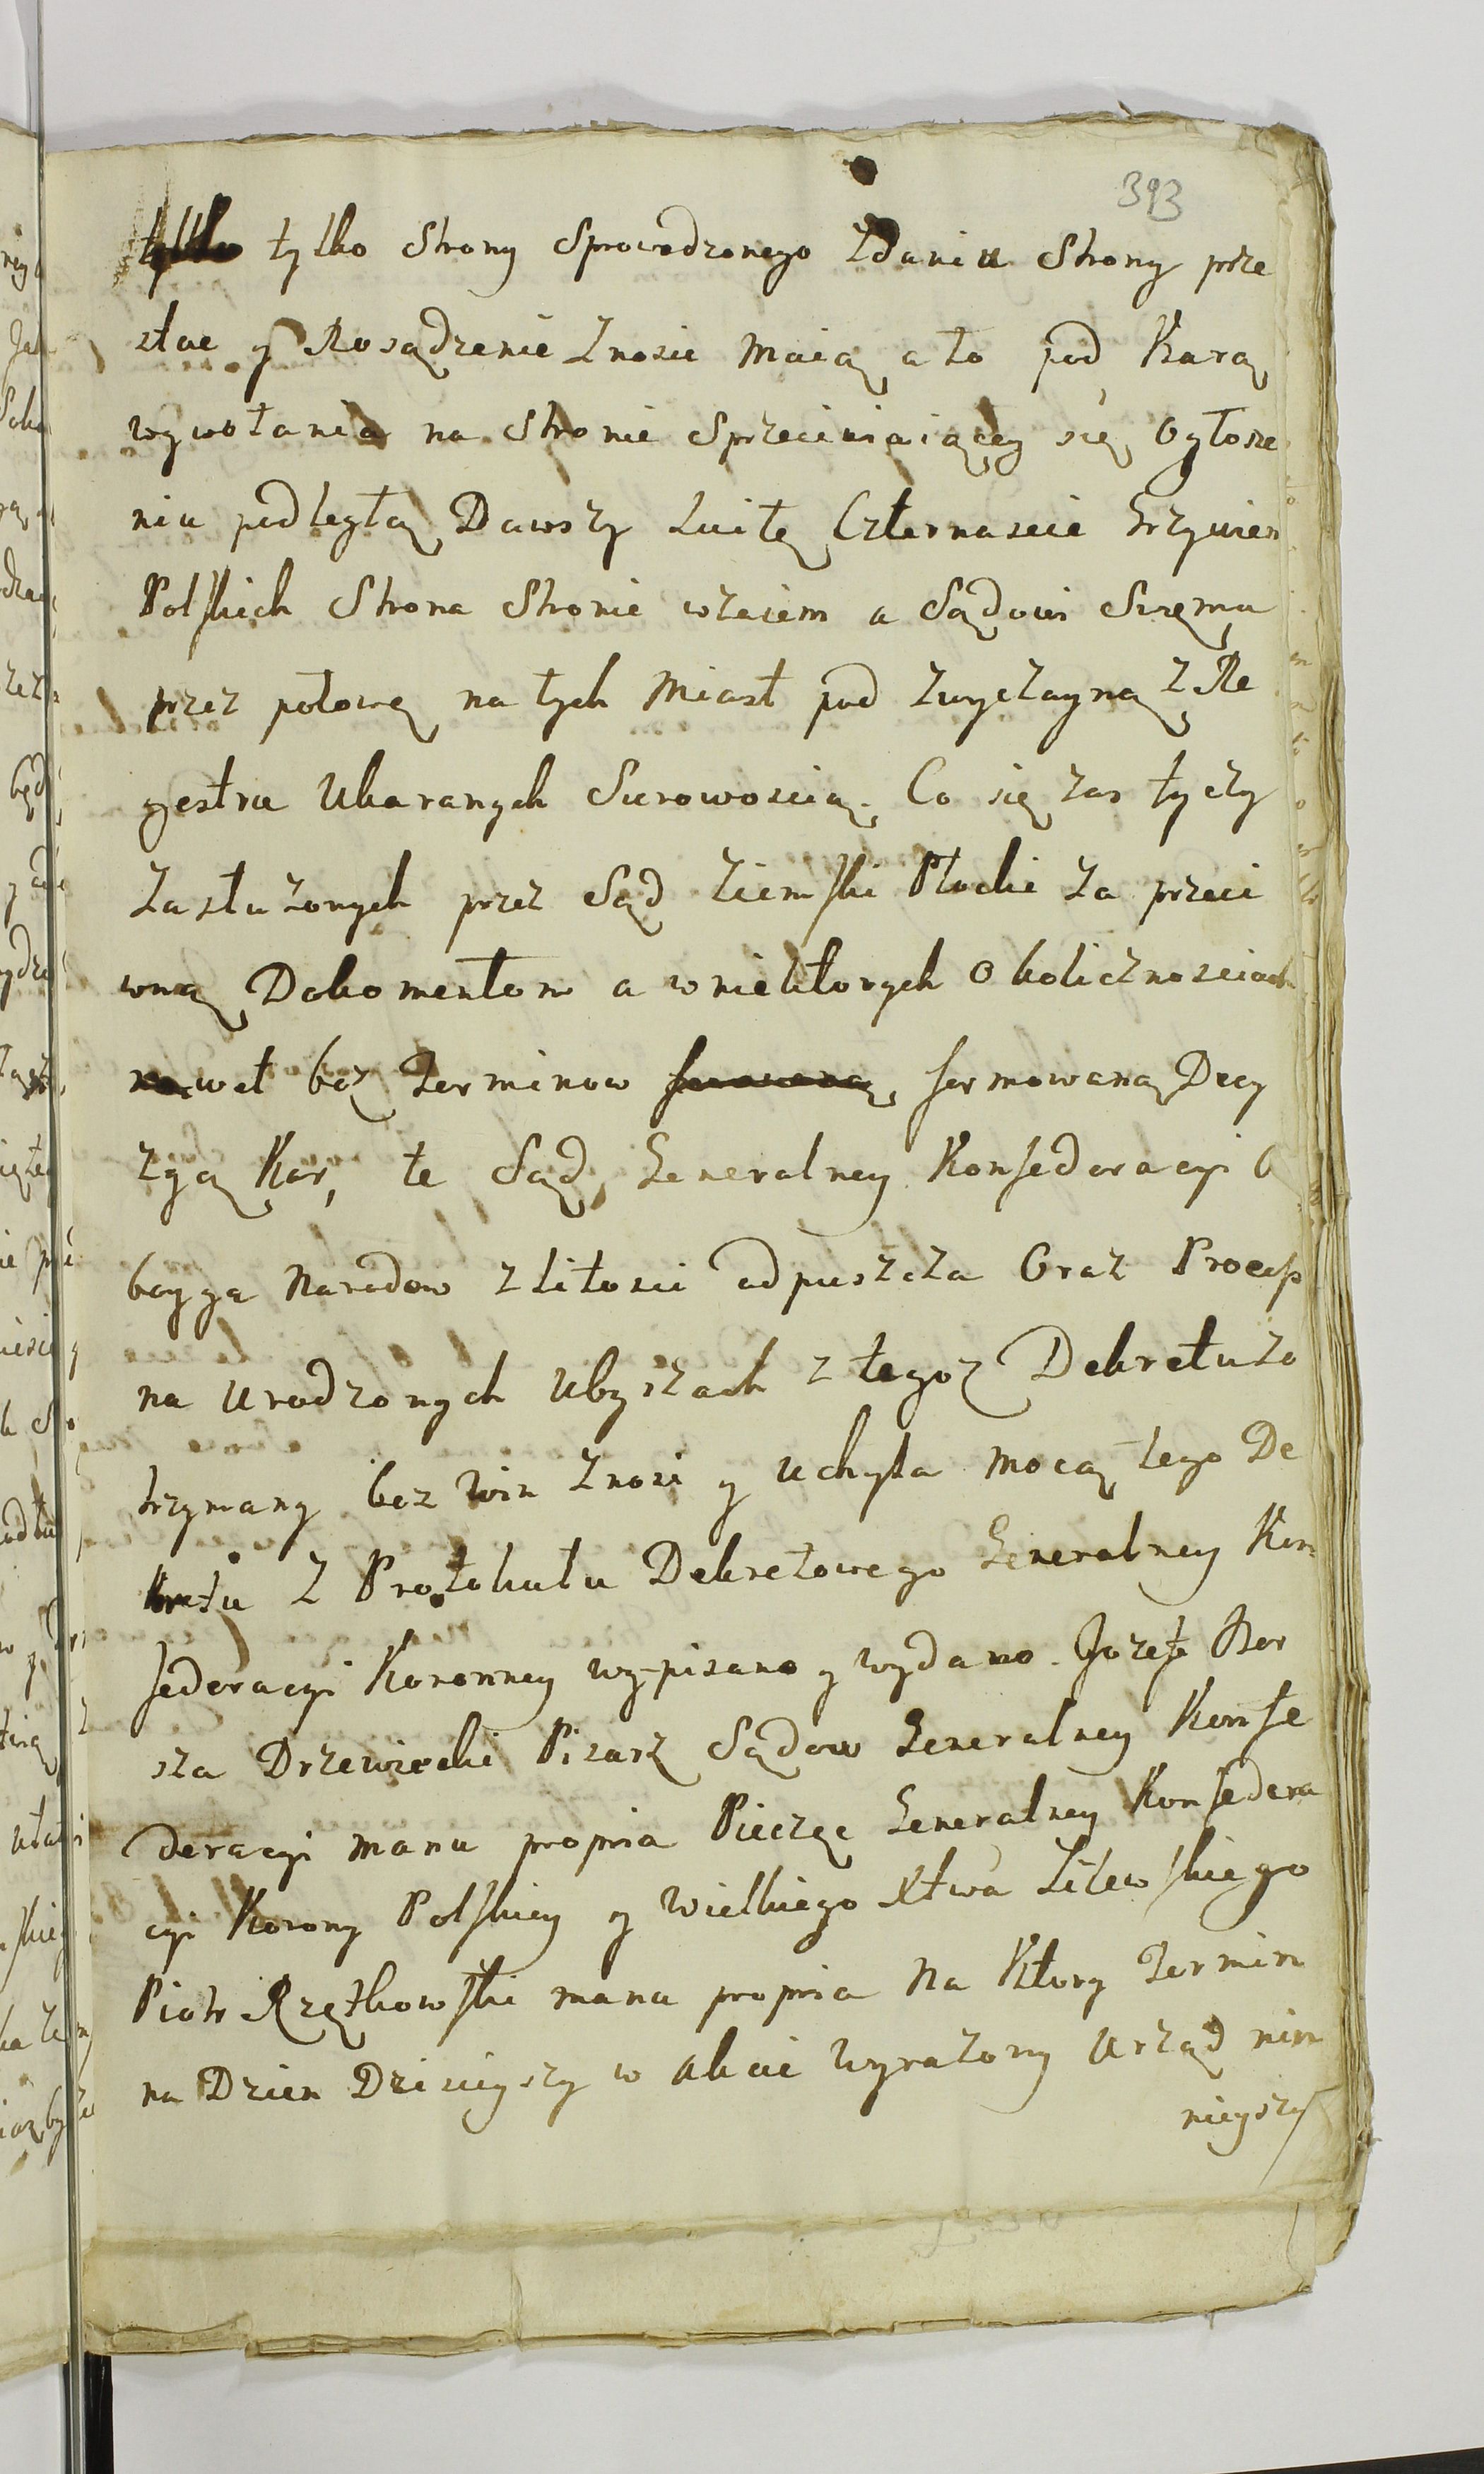 393
tylko tylko Strony Sprowadzonego Zdaniu Strony prze
stac y Rosądzenie Znosic Maią a to pod Karą
wywołania na Stronie Sprzeciwiaiącey się Ogłosze
niu podległą Dawszy Luitę Czternascie Grzywien
Polskich Strona Stronie wzaiem a Sądowi Swęmu
przez połowę na tych Miast pod zwyczayną z Re
gestru Ukaranych Surowoscią. Co się zas tyczy
Zasłużonych przez Sąd Ziemski Płocki za przeci
wną Dokomentom a w niektorych Okolicznosciach
nawet bez Terminow formowaną Decy
zyą Kar, te Sąd Generalney Konfederacyi O
boyga Narodow z litosci odpuszcza Oraz Process
na Urodzonych Ubyszach z tegoz Dekretu zo
trzymany bez Win Znosi y Uchyla Mocą tego De
kretu Z Protokułu Dekretowego Generalney Kon
federacyi Koronney wypisano y wydano. Jozef Bor
sza Drzewiecki Pisarz Sądow Generalney Konfe
deracyi manu propria Pieczęc Generalney Konfedera
cyi Korony Polskiey y Wielkiego Xtwa Litewskiego
Piotr Rzętkowski manu propria Na Ktory Termin
na Dzien Dzisieyszy w Akcie Wyrazony Urząd nin
nieyszy